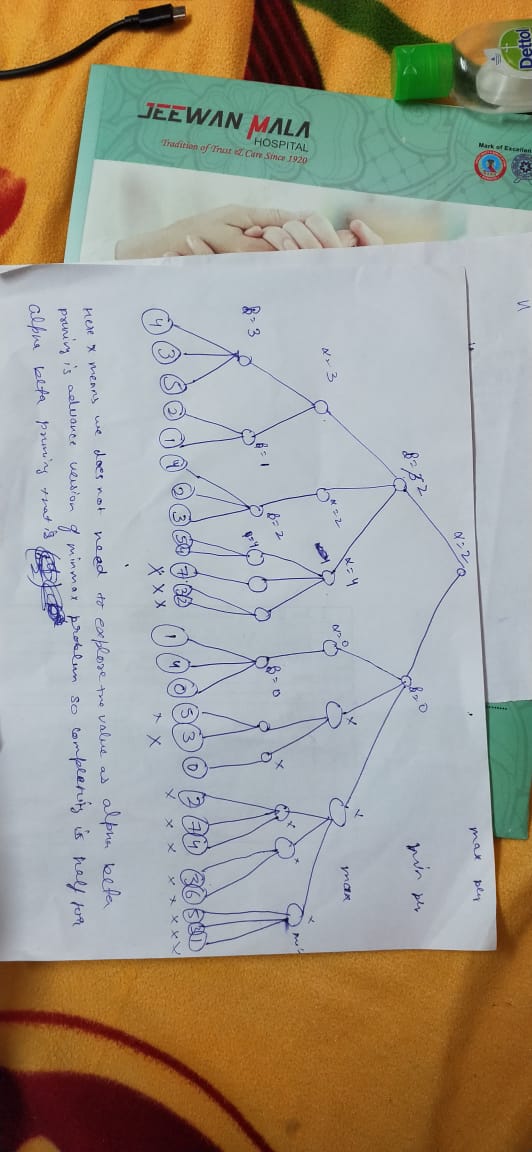 Dettol
JEEWAN MALA
HOSPITAL
Tradition of Trust & Care Since 1920
Mark of Excellen
α=2
max
β=2
β=0
min
α=3
α=2
α=4
α=0
x
x
max
β=3
β=1
β=2
β=0
x
x
x
x
4 3 5 2 1 4 2 3 5 7 1 4 0 5 3 0 2 7 4 3 6 5 1
x x x x x x x x x x x x x
Here x means we does not need to explore the value as alpha beta
pruning is advance version of minmax problem so complexity is half for
alpha beta pruning that is